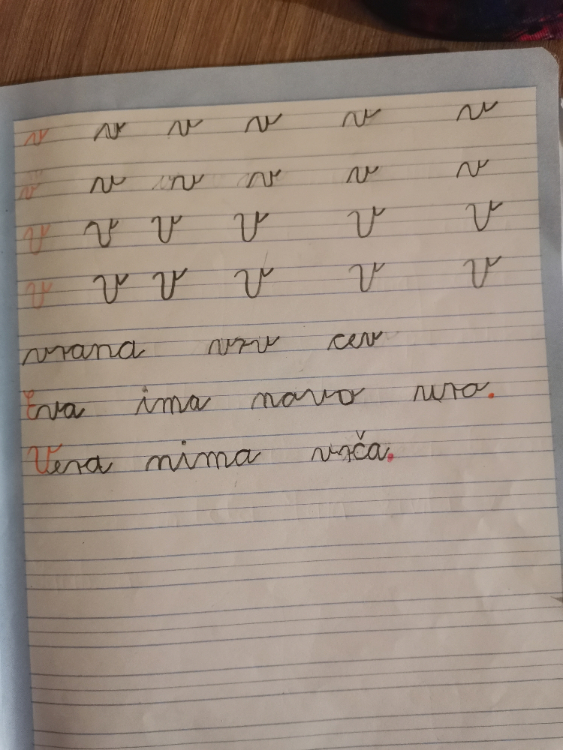 v v v v v v
v v v v v v
V V V V V V
V V V V V V
vrana vrv cev
Eva ima novo uro.
Vera nima vrča.